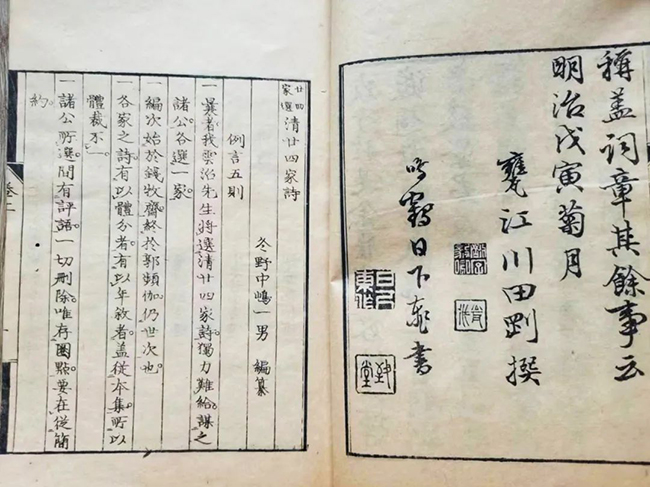 稱盖词章其餘事云
明治戊寅菊月
甕江川田剛撰
鳴鶴日下東書
日下東作
廿四家選 清廿四家詩
冬野中嶋一男 編纂
例言五則
一曩者我票治先生将選清廿四家詩獨力難給謀之
諸公各選一家
一編次始於錢牧齋終於郭頻伽仍世次也
一各家之詩有以體分者有以年敘者盖從本集所以
體裁不一
一諸公所選間有評語一切刪除唯存圈點要在從簡
約